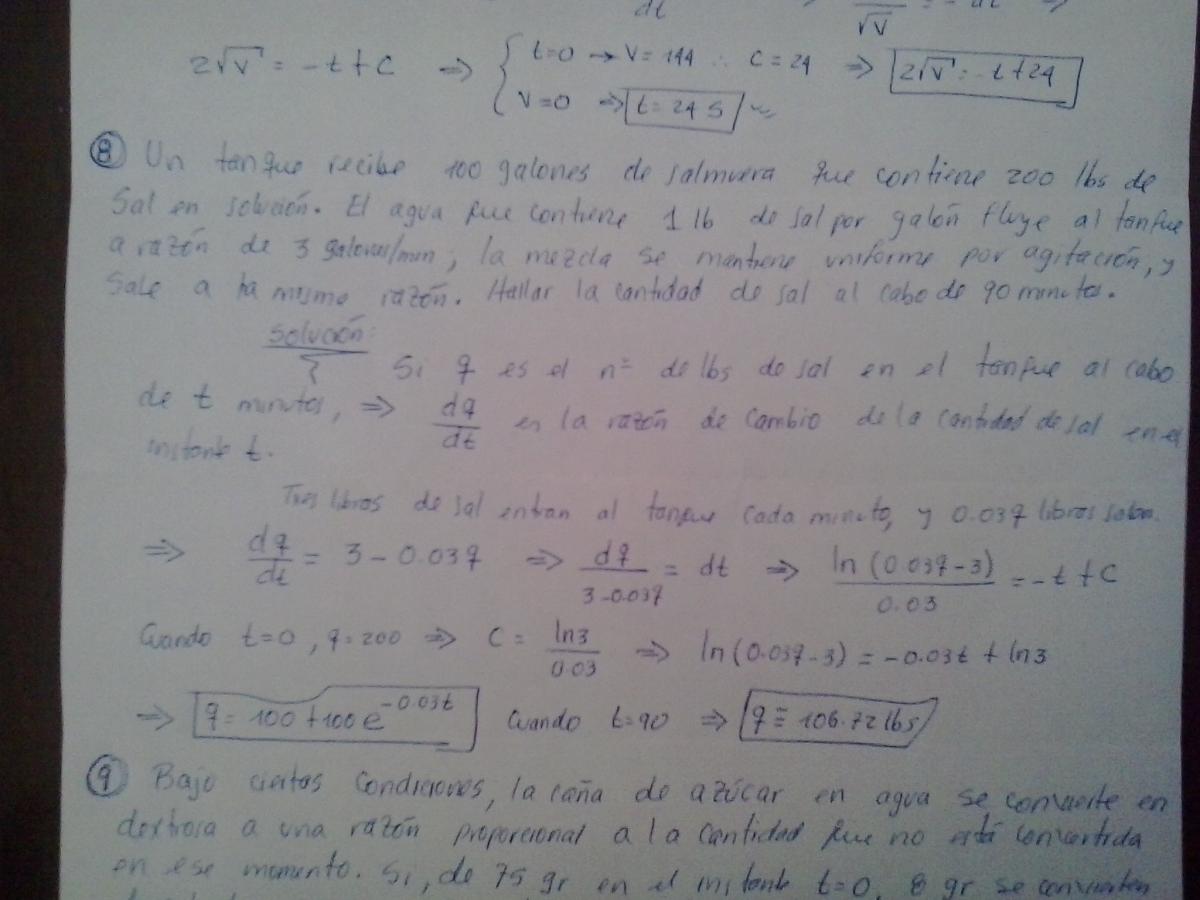 dt √V = - dt ⇒
2√V = -t + C ⇒ { t=0 → V = 144 ∴ C = 24 ⇒ 2√V = -t + 24
V=0 ⇒ t = 24 s
⑧ Un tanque recibe 100 galones de salmuera que contiene 200 lbs de
Sal en solución. El agua que contiene 1 lb de sal por galón fluye al tanque
a razón de 3 galones/min; la mezcla se mantiene uniforme por agitación, y
sale a la misma razón. Hallar la cantidad de sal al cabo de 90 minutos.
Solución:
Si q es el nº de lbs de sal en el tanque al cabo
de t minutos, ⇒ dq/dt en la razón de cambio de la cantidad de sal en el
instante t.
Tres libras de sal entran al tanque cada minuto, y 0.03q libras salen.
⇒ dq/dt = 3 - 0.03q ⇒ dq/(3-0.03q) = dt ⇒ ln (0.03q-3)/0.03 = -t + C
Cuando t=0, q=200 ⇒ C = ln3/0.03 ⇒ ln(0.03q-3) = -0.03t + ln3
⇒ q = 100 + 100 e^-0.03t Cuando t=90 ⇒ q ≅ 106.72 lbs
⑨ Bajo ciertas condiciones, la caña de azúcar en agua se convierte en
dextrosa a una razón proporcional a la cantidad que no está convertida
en ese momento. Si, de 75 gr en el instante t=0, 8 gr se convierten